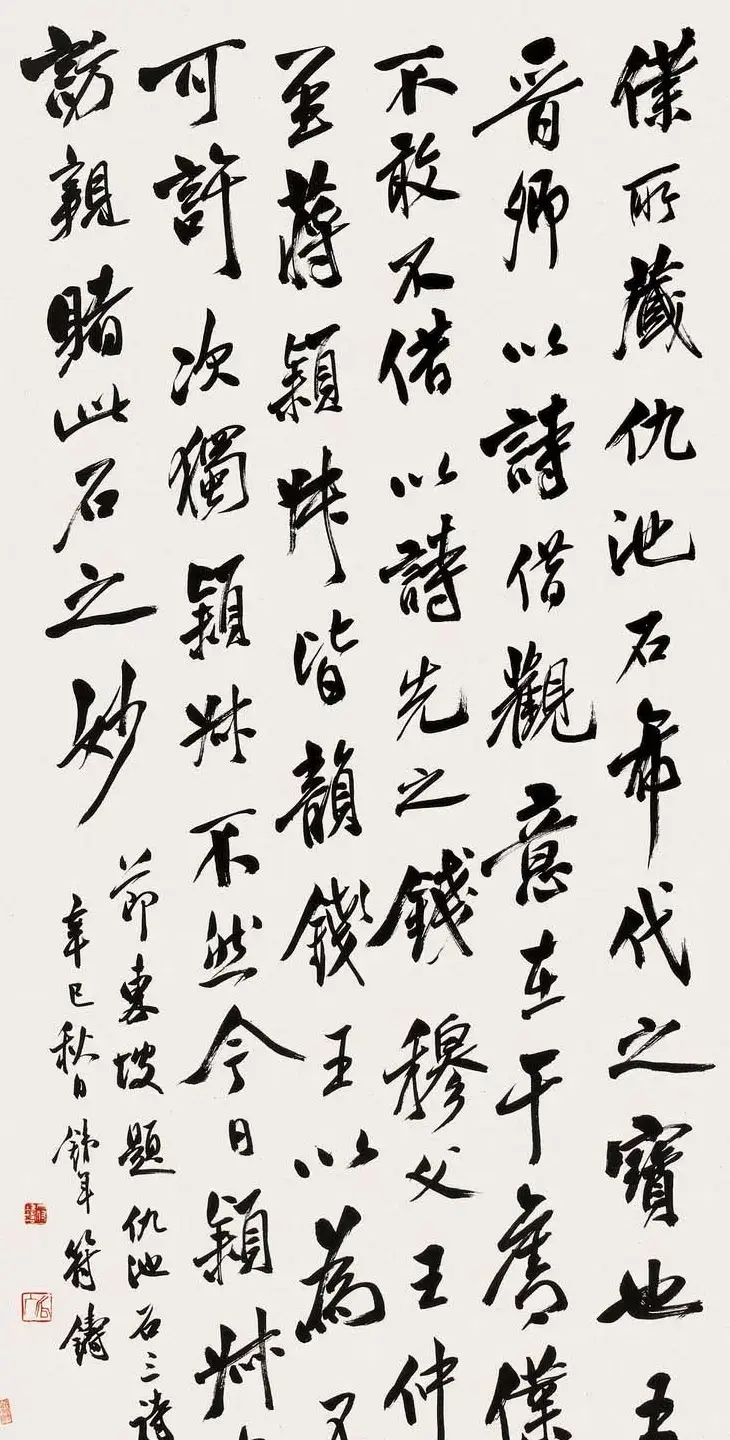 僕所藏仇池石希代之寶也王
晉卿以詩借觀意在于奪僕
不敢不借以詩先之錢穆父王仲
至蔣穎叔皆韻錢王以為不
可許次獨穎叔不然今日穎叔
訪親睹此石之妙
節東坡題仇池石三詩
辛巳秋日 鐵年符鑄